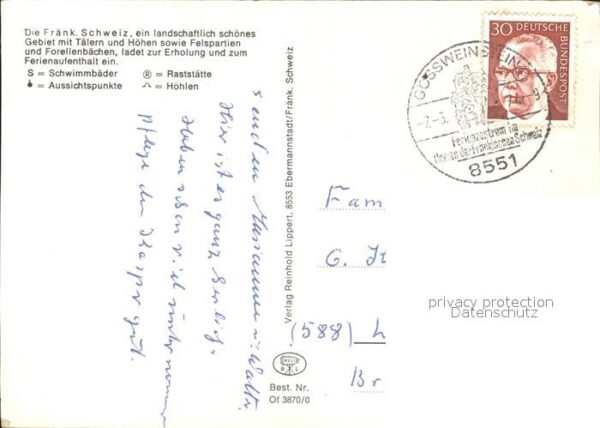 Die Fränk. Schweiz, ein landschaftlich schönes
Gebiet mit Tälern und Höhen sowie Felspartien
und Forellenbächen, ladet zur Erholung und zum
Ferienaufenthalt ein.
S = Schwimmbäder
® = Raststätte
= Aussichtspunkte
= Höhlen
Hier ist es ganz herrlich.
Haben schon viel unternommen
pflege den Körper gut.
senden Marianne u. Walti
Verlag Reinhold Lippert, 8553 Ebermannstadt/Fränk. Schweiz
Best. Nr.
Of 3870/0
30 DEUTSCHE BUNDESPOST
GÖSSWEINSTEIN
-7.-5.
Ferienzentrum im
Herzen der Fränkischen Schweiz
8551
Fam
G.
(588) L
Br
privacy protection
Datenschutz